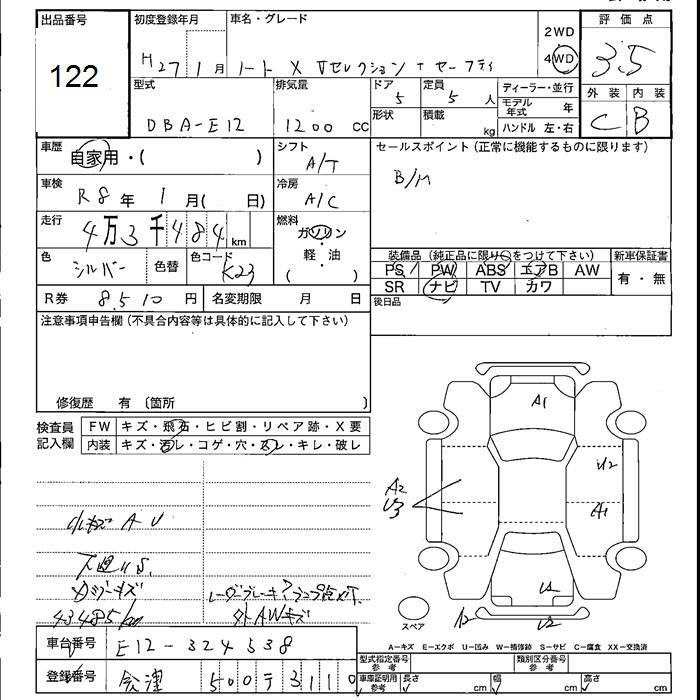 出品番号
122
初度登録年月
H27年1月
車名・グレード
ノート X Vセレクション + セーフティ
2WD
4WD
評価点
3.5
外装 内装
C B
型式
DBA-E12
排気量
1200 cc
ドア
5
定員
5 人
形状
積載
kg
ディーラー・並行
モデル年式 年
ハンドル 左・右
車歴
自家用・( )
シフト
A/T
セールスポイント (正常に機能するものに限ります)
B/M
車検
R8年 1月( 日)
冷房
A/C
走行
4万3千484km
燃料
ガソリン
軽・油
( )
色
シルバー
色替
色コード
K23
装備品 (純正品に限り○をつけて下さい)
新車保証書
PS PW ABS エアB AW
SR ナビ TV カワ
有・無
R券 8510円
名変期限 月 日
後日品
注意事項申告欄 (不具合内容等は具体的に記入して下さい)
修復歴 有 〔箇所 〕
検査員記入欄
FW キズ・飛石・ヒビ割・リペア跡・X要
内装 キズ・汚レ・コゲ・穴・スレ・キレ・破レ
小キズ A U
下廻りS.
43485km
外AWキズ
A1
U2
A1
A2
U3
U2
スペア
A−キズ E−エクボ U−凹み W−補修跡 S−サビ C−腐食 XX−交換済
車台番号
E12-324538
登録番号
会津 500 3110
型式指定番号
参考
類別区分番号
参考
車庫証明用
参考
長さ cm
幅 cm
高さ cm